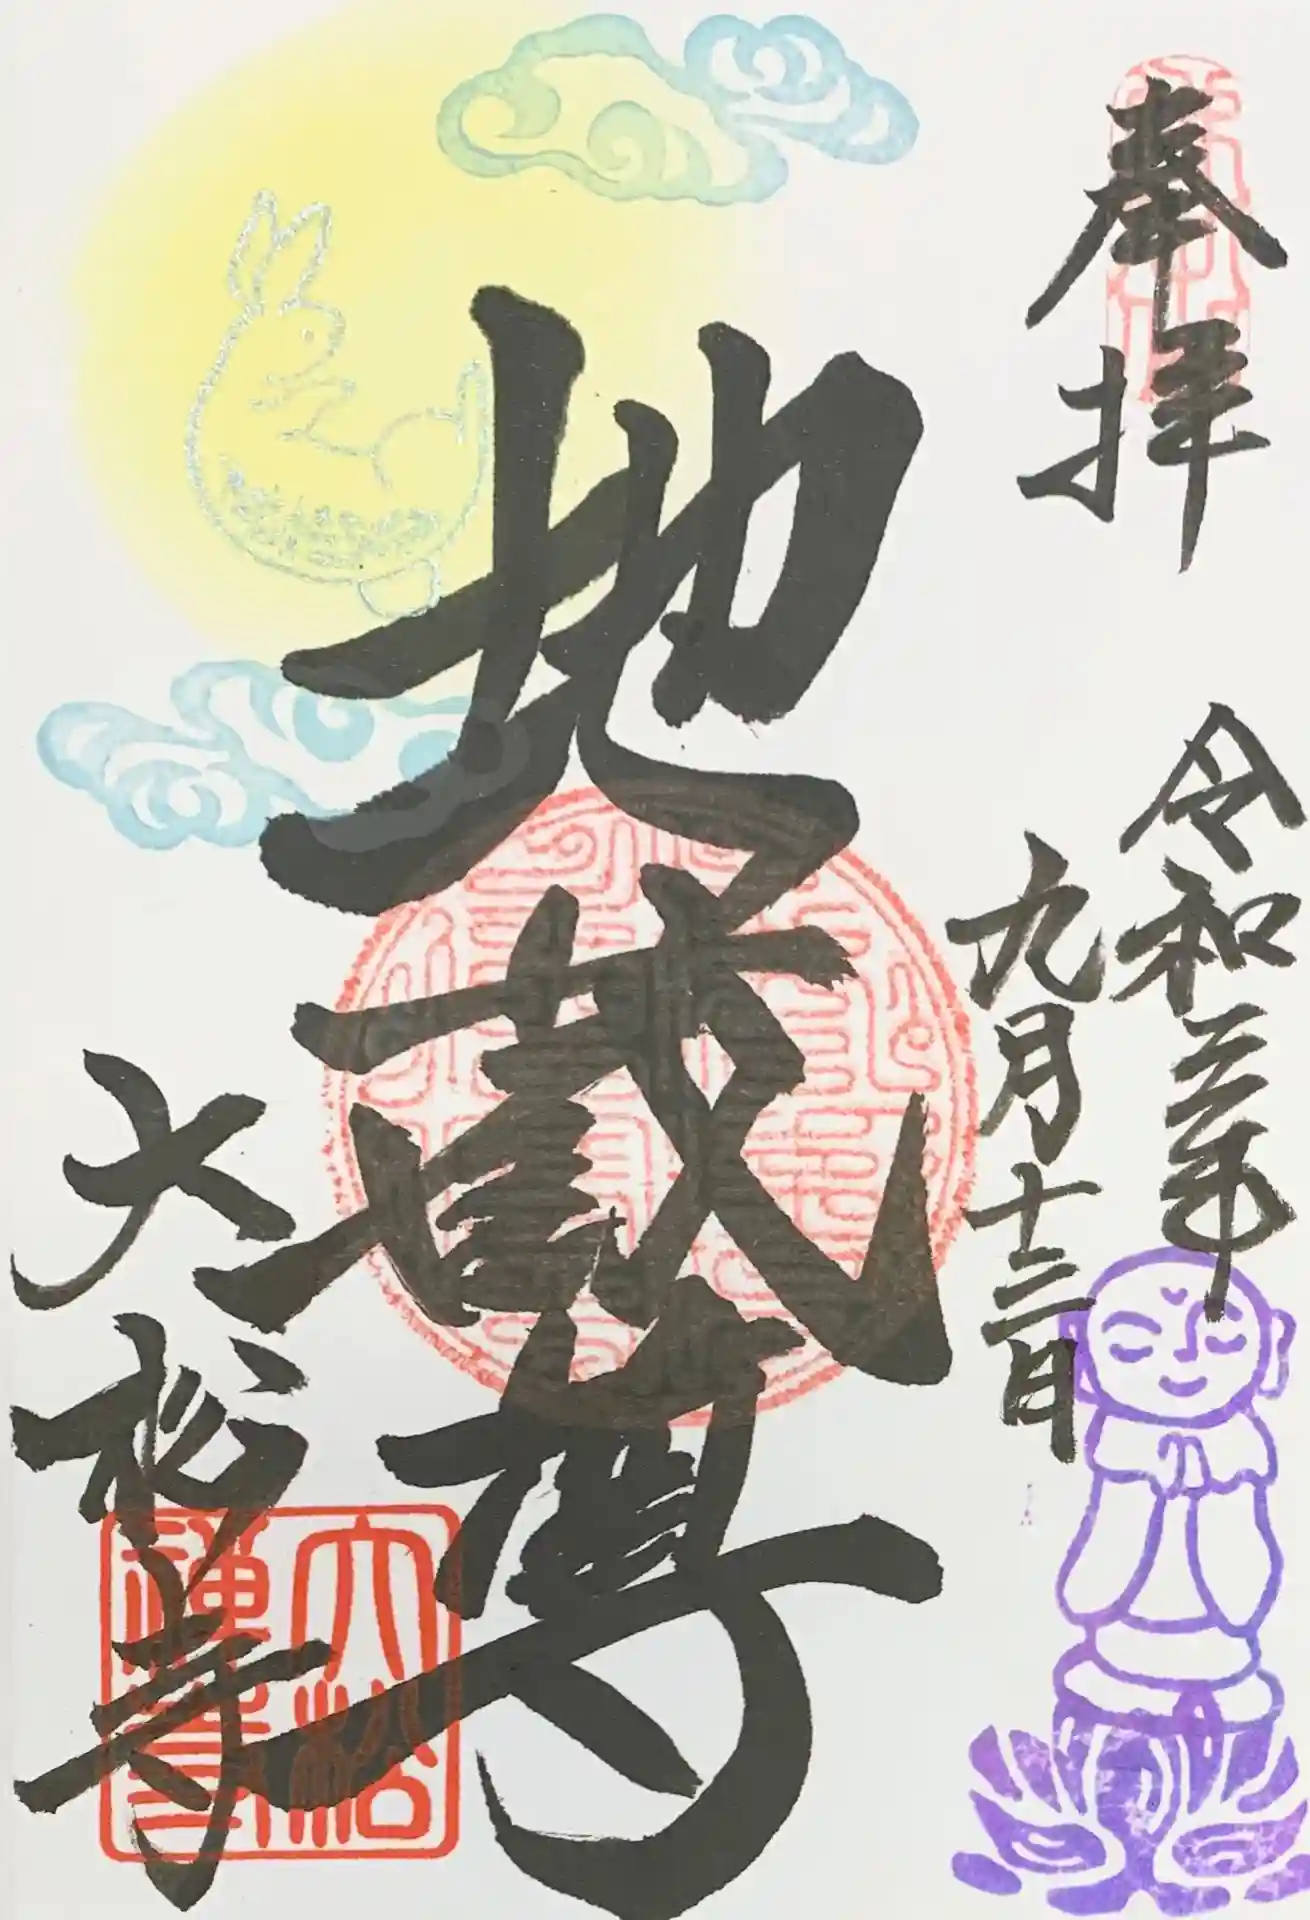 奉拝
令和三年
九月十三日
地蔵尊
大松寺
大松
禅寺